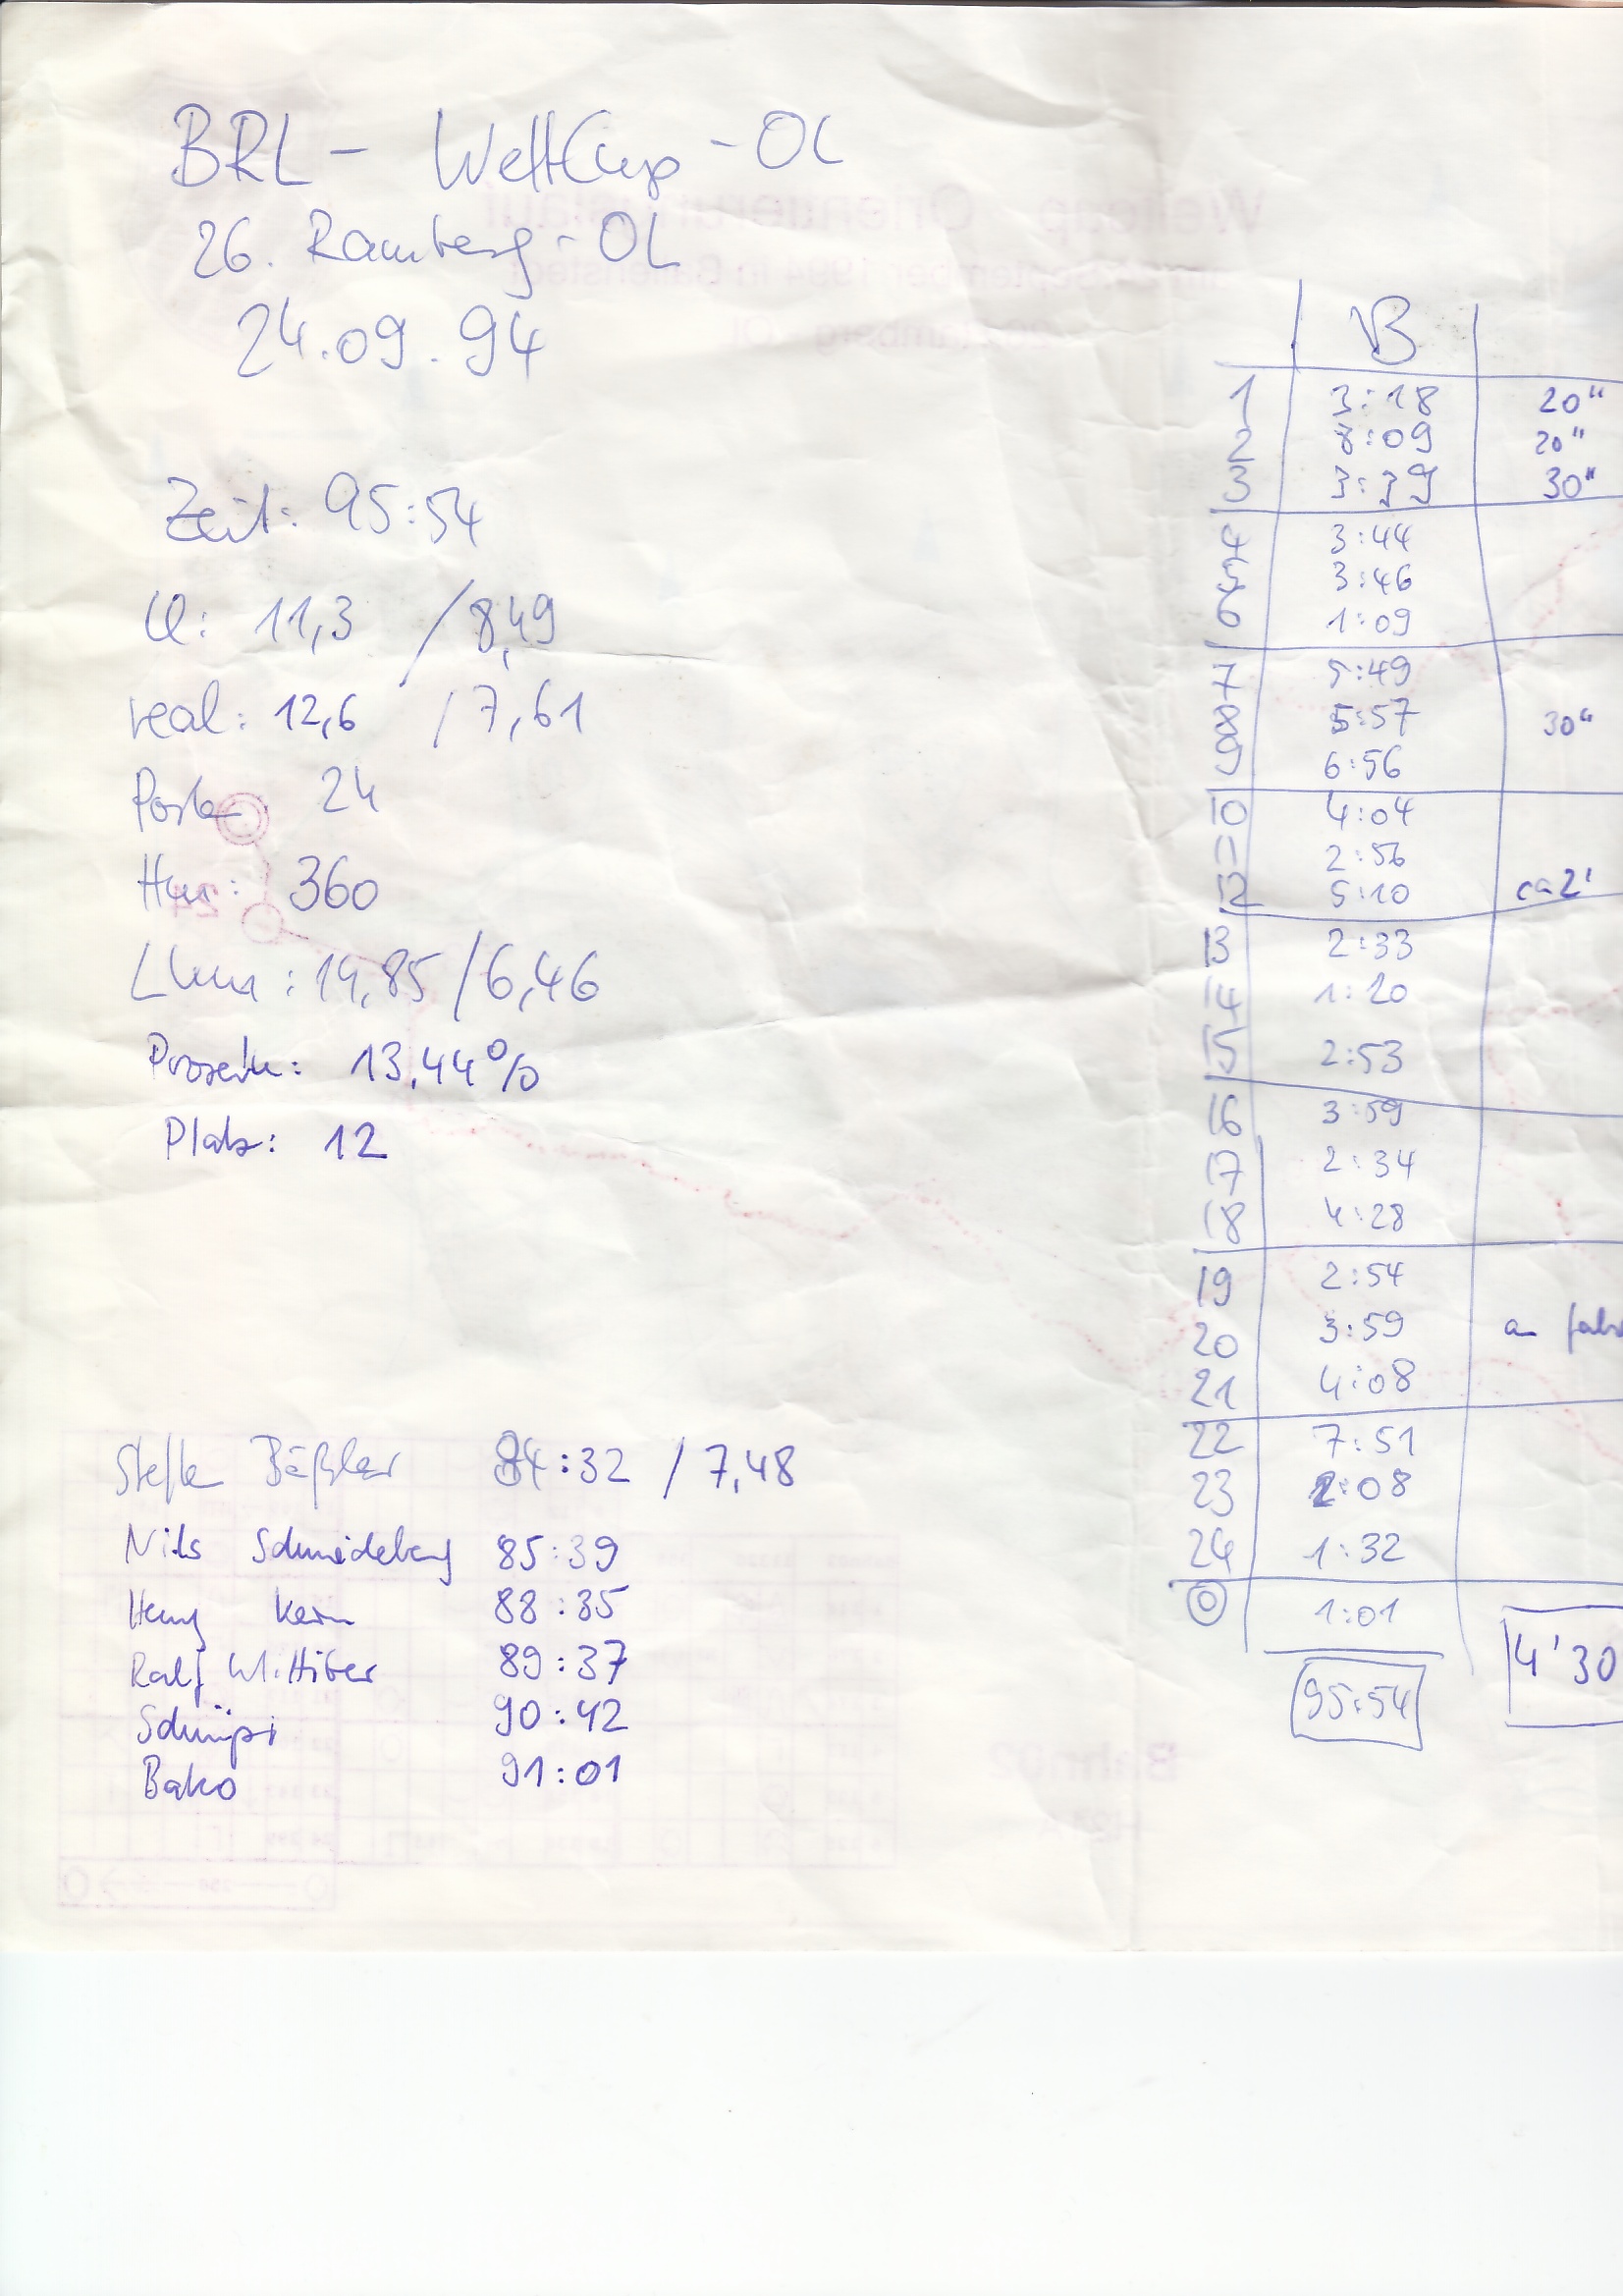 BRL - WeltCup - OL
26. Ramberg - OL
24.09.94
Zeit: 95:54
11,3 / 8,49
real: 12,6 / 7,61
Posten 24
Hm: 360
Lkm: 14,85 / 6,46
Prozente: 13,44%
Platz: 12
84:32 / 7,48
Nils Schmiedeberg 85:39
Henry Kern 88:35
Ralf 89:37
Schnüpi 90:42
Bako 91:01
B
1 3:18 20"
2 8:09 20"
3 3:39 30"
4 3:44
5 3:46
6 1:09
7 5:49
8 5:57 30"
9 6:56
10 4:04
11 2:56
12 5:10 ca 2'
13 2:33
14 1:20
15 2:53
16 3:59
17 2:34
18 4:28
19 2:54
20 3:59
21 4:08
22 7:51
23 2:08
24 1:32
1:01
95:54 4'30